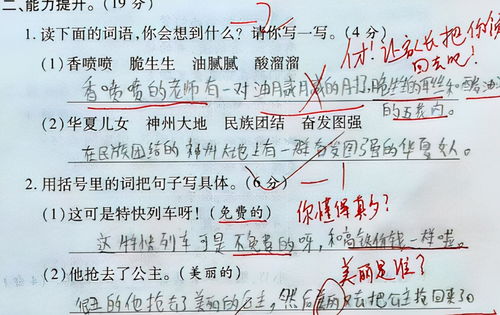 二、能力提升。(19分)
1.读下面的词语,你会想到什么?请你写一写。(4分)
付!让家长把你
(1)香喷喷 脆生生 油腻腻 酸溜溜
回去吧!
香喷喷的老师有一对油腻腻的
的五表内。
(2)华夏儿女 神州大地 民族团结 奋发图强
在民族团结的神州大地上有一群奋发图强的华夏女人。
2.用括号里的词把句子写具体。(6分)
(1)这可是特快列车呀!(免费的)
你懂得真多?
这特快列车可是不免费的呀,和高铁价钱一样啦。
(2)他抢去了公主。(美丽的)
美丽是谁了
他抢去了美丽的公主,然后美丽又去把公主抢回来了。